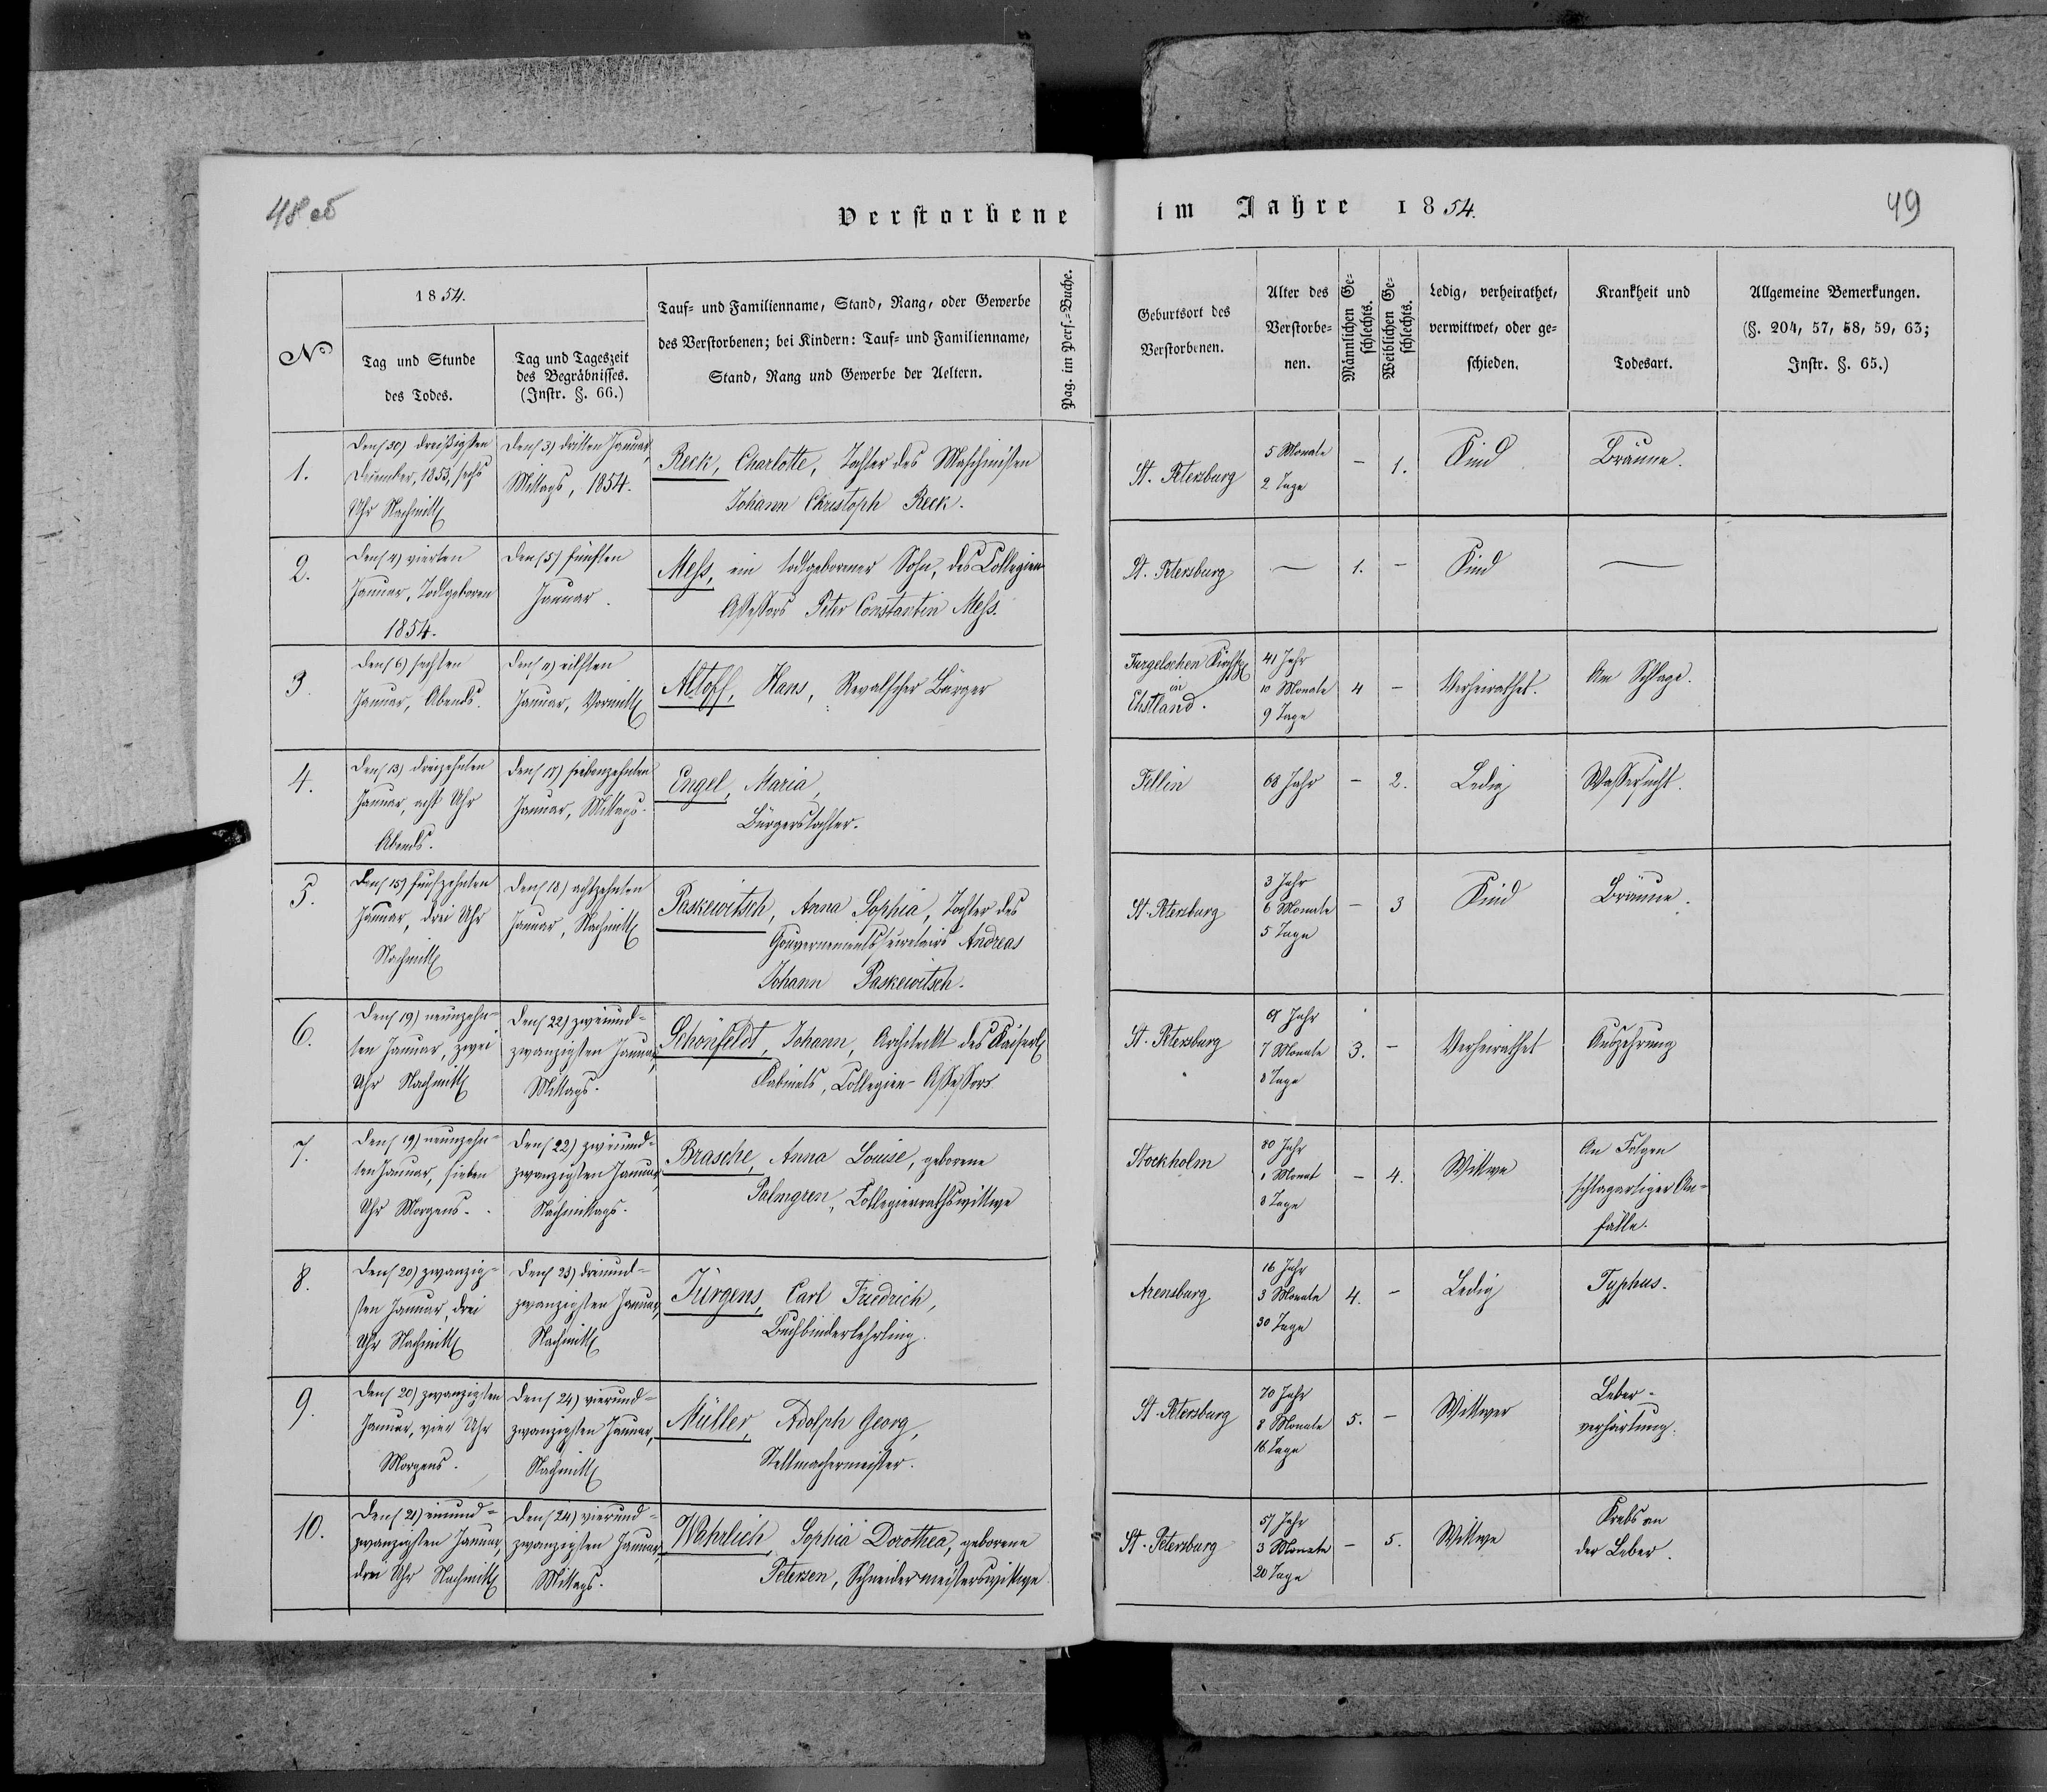 48 об
Verstorbene
im Jahre 1854.
49
No
1854.
Tag und Stunde
des Todes.
Tag und Tageszeit
des Begräbnisses.
(Instr. §. 66.)
Tauf- und Familienname, Stand, Rang, oder Gewerbe
des Verstorbenen; bei Kindern: Tauf- und Familienname,
Stand, Rang und Gewerbe der Aeltern.
Pag. im Pers.-Buche.
Geburtsort des
Verstorbenen.
Alter des
Verstorbe-
nen.
Männlichen Ge-
schlechts.
Weiblichen Ge-
schlechts.
Ledig, verheirathet,
verwittwet, oder ge-
schieden.
Krankheit und
Todesart.
Allgemeine Bemerkungen.
(§. 204, 57, 58, 59, 63;
Instr. §. 65.)
1.
Den (30) dreißigsten
December, 1853, sechs
Uhr Nachmitt
Den (3) dritten Januar,
Mittags, 1854.
Reck, Charlotte, Tochter des Maschinisten
Johann Christoph Reck.
St. Petersburg
5 Monate
2 Tage
—
1.
Kind
Bräune.
2.
Den (4) vierten
Januar, Todtgeboren
1854.
Den (5) fünften
Januar.
Mess, ein todtgeborner Sohn, des Collegien-
Assessors Peter Constantin Mess.
St. Petersburg
—
1.
—
Kind
—
3.
Den (6) sechsten
Januar, Abends.
Den (11) eilften
Januar, Vormitt
Altoff, Hans, Revalscher Bürger
Turgelschen Kirchsp
in
Ehstland.
41 Jahr
10 Monate
9 Tage
4
—
Verheirathet.
Am Schlage.
4.
Den (13) dreizehnten
Januar, acht Uhr
Abends.
Den (17) siebenzehnten
Januar, Mittags.
Engel, Maria,
Bürgerstochter.
Fellin
68 Jahr
—
2.
Ledig
Wassersucht.
5.
Den (15) fünfzehnten
Januar, drei Uhr
Nachmitt
Den (18) achtzehnten
Januar, Nachmitt
Paskewitsch, Anna Sophia, Tochter des
Gouvernementssecretairs Andreas
Johann Paskewitsch.
St. Petersburg
3 Jahr
6 Monate
5 Tage
—
3
Kind
Bräune.
6.
Den (19) neunzehn-
ten Januar, zwei
Uhr Nachmitt
Den (22) zweiund-
zwanzigsten Januar,
Mittags.
Schönfeldt, Johann, Architeckt des Kaiserl
Kabinets, Collegien-Assessors
St. Petersburg
Jahr
7 Monate
8 Tage
3.
—
Verheirathet
Auszehrung
7.
Den (19) neunzehn-
ten Januar, sieben
Uhr Morgens.
Den (22) zweiund-
zwanzigsten Januar,
Nachmittags.
Brasche, Anna Louise, geborene
Palmgren, Collegienrathswittwe
Stockholm
80 Jahr
1 Monat
8 Tage
—
4.
Wittwe
An Folgen
schlagartiger An-
fälle.
8.
Den (20) zwanzig-
sten Januar, drei
Uhr Nachmitt
Den (23) dreiund-
zwanzigsten Januar,
Nachmitt
Jürgens, Carl Friedrich,
Buchbinderlehrling.
Arensburg
16 Jahr
3 Monate
30 Tage
4.
—
Ledig
Typhus.
9.
Den (20) zwanzigsten
Januar, vier Uhr
Morgens.
Den (24) vierund-
zwanzigsten Januar,
Nachmitt
Müller, Adolph Georg,
Stellmachermeister.
St. Petersburg
70 Jahr
8 Monate
16 Tage
5.
—
Wittwer
Leber-
verhärtung.
10.
Den (21) einund-
zwanzigsten Januar,
drei Uhr Nachmitt
Den (24) vierund-
zwanzigsten Januar,
Mittags.
Wahrlich, Sophia Dorothea, geborene
Petersen, Schneidermeisterswittwe
St. Petersburg
57 Jahr
3 Monate
20 Tage
—
5.
Wittwe
Krebs an
der Leber.